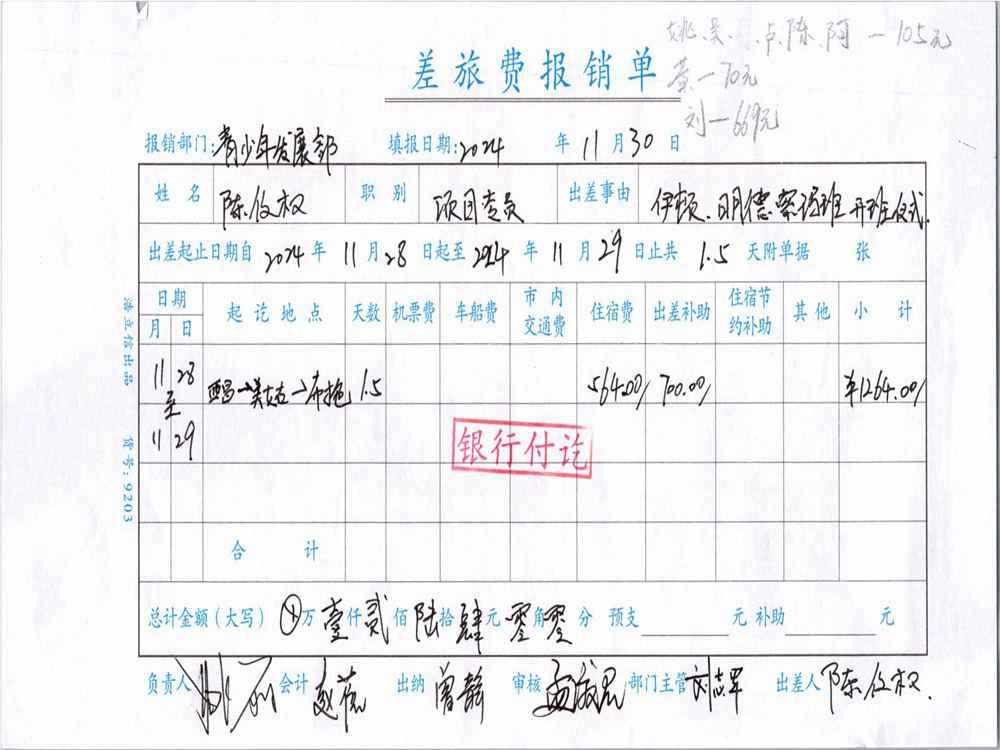 姚、吴、卢、陈、阿 — 105元
黄 — 70元
刘 — 669元
差旅费报销单
报销部门:青少年发展部 填报日期:2024 年 11 月 30 日
姓名 陈俊权 职别 项目专员 出差事由 伊顿、明德察强班开班仪式.
出差起止日期自 2024 年 11 月 28 日起至 2024 年 11 月 29 日止共 1.5 天附单据 张
日期 起讫地点 天数 机票费 车船费 市内交通费 住宿费 出差补助 住宿节约补助 其他 小计
月 日
11 28 西昌→美姑→布拖 1.5 564.00/ 700.00/ ¥1264.00/
至
11 29
银行付讫
合计
总计金额(大写) ⊗万 壹仟 贰佰 陆拾 肆元 零角 零分 预支 元 补助 元
负责人 会计 出纳 曾静 审核 部门主管 出差人 陈俊权.
浩立信出品 货号:9203